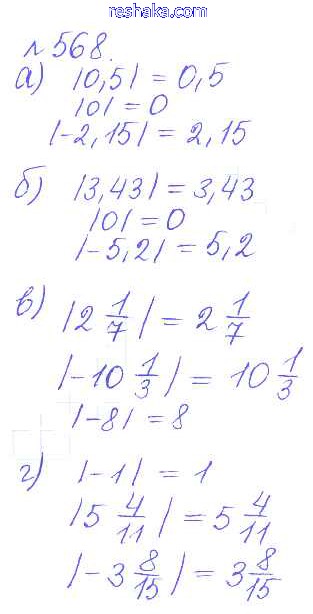 reshaka.com
№568.
а) |0,5| = 0,5
|0| = 0
|-2,15| = 2,15
б) |3,43| = 3,43
|0| = 0
|-5,2| = 5,2
в) |2 1/7| = 2 1/7
|-10 1/3| = 10 1/3
|-8| = 8
г) |-1| = 1
|5 4/11| = 5 4/11
|-3 8/15| = 3 8/15